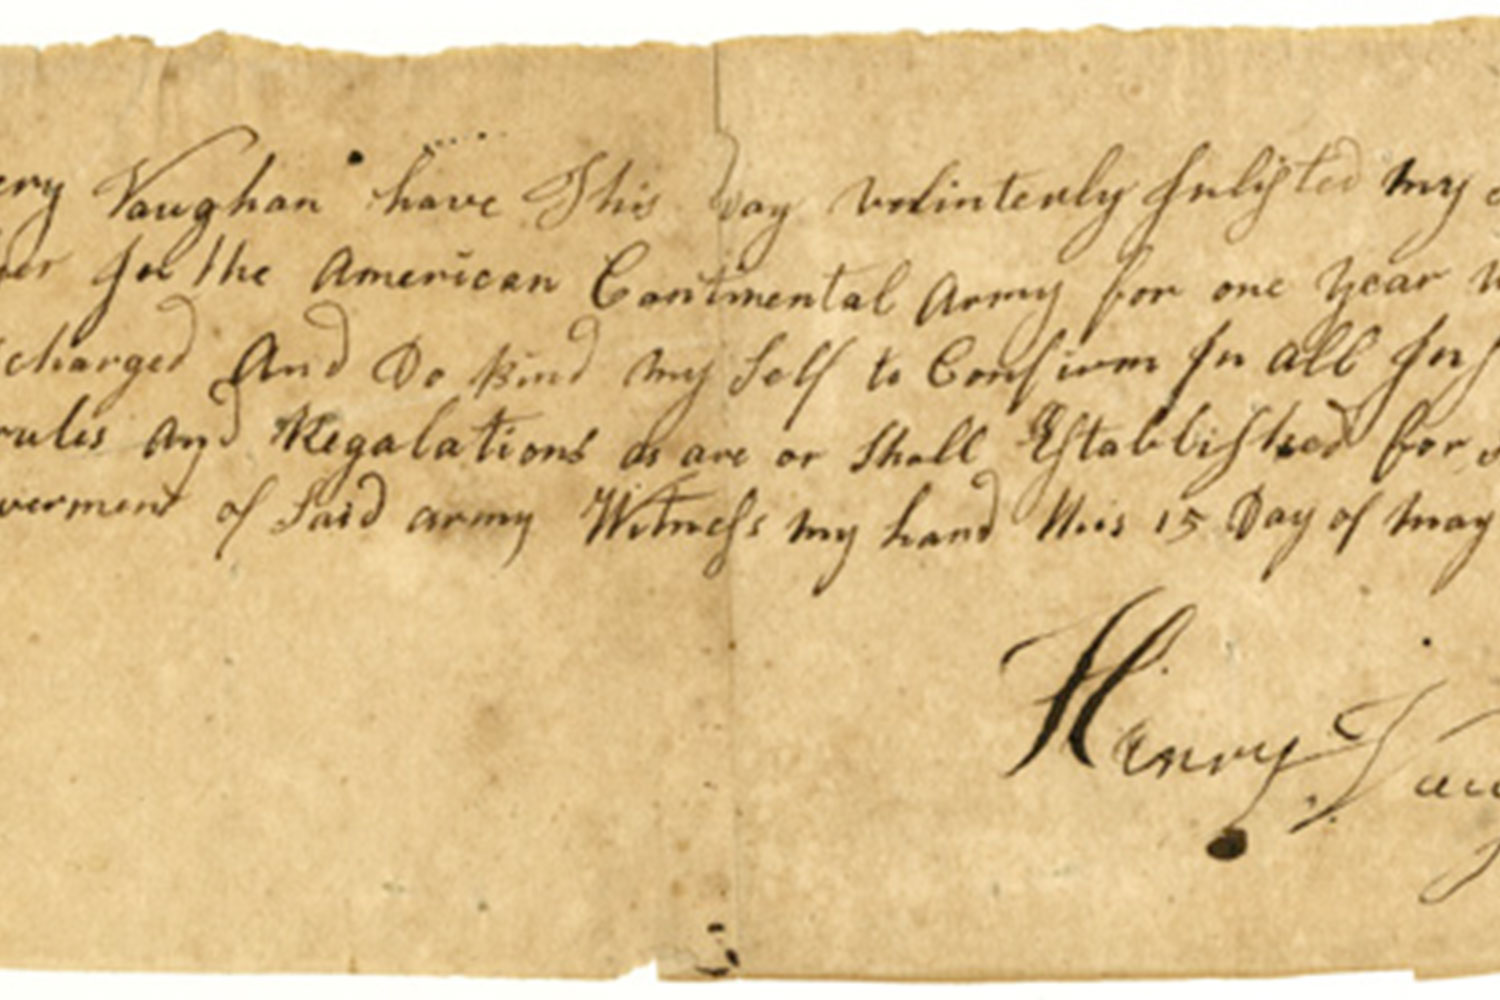 ery Vaughan have This Day volintenly Inlisted my
er in the American Contimental Army for one year
charged And Do Bind my Self to Confirm In all Ins
rules and Regalations as are or Shall Established for
verment of Said army Witness my hand this 15 Day of may
Henry Vau